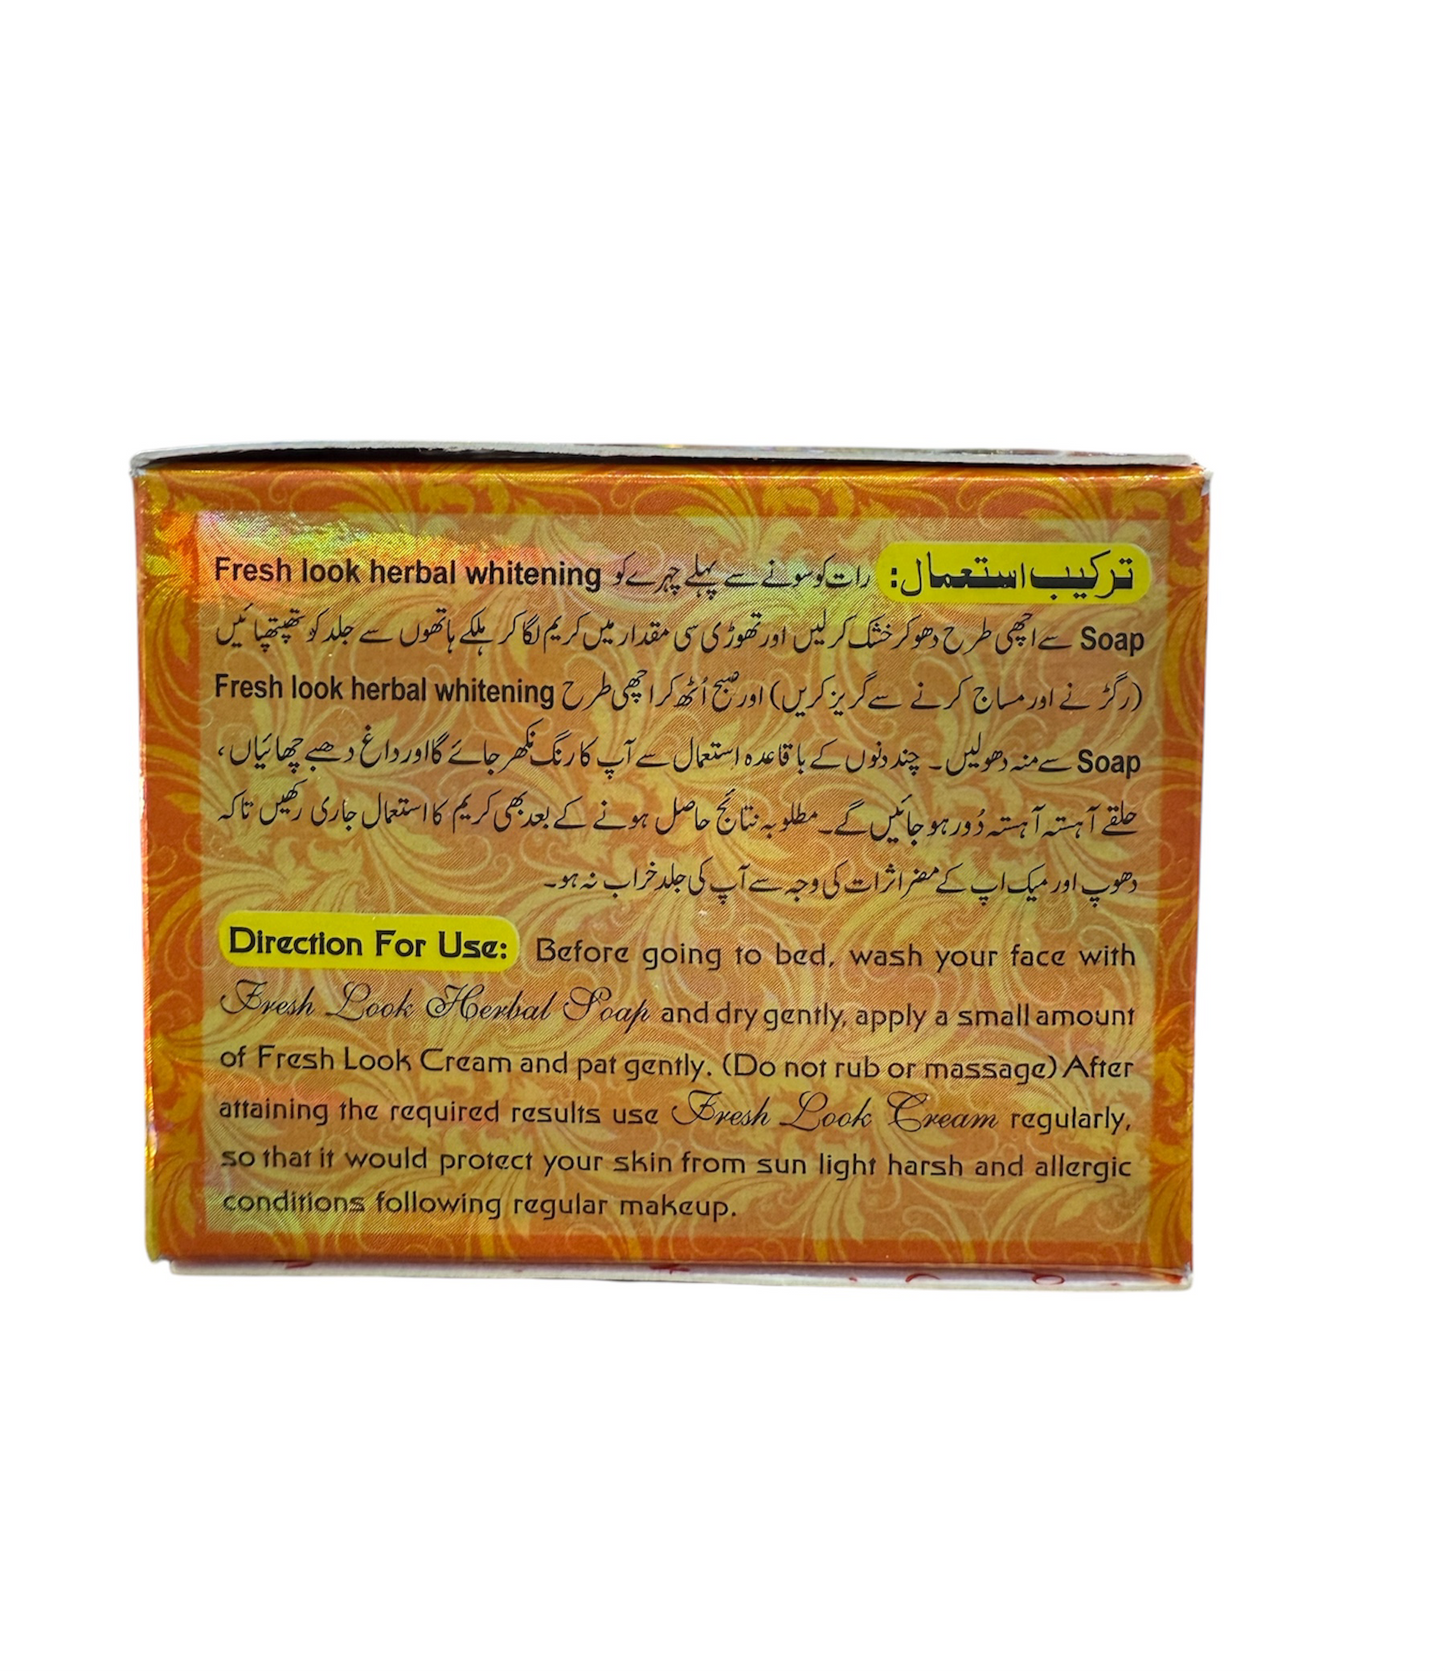 ترکیب استعمال: رات کو سونے سے پہلے چہرے کو Fresh look herbal whitening
Soap سے اچھی طرح دھو کر خشک کر لیں اور تھوڑی سی مقدار میں کریم لگا کر ہلکے ہاتھوں سے جلد کو تھپتھپائیں
(رگڑنے اور مساج کرنے سے گریز کریں) اور صبح اُٹھ کر اچھی طرح Fresh look herbal whitening
Soap سے منہ دھو لیں۔ چند دنوں کے باقاعدہ استعمال سے آپ کا رنگ نکھر جائے گا اور داغ دھبے چھائیاں،
حلقے آہستہ آہستہ دُور ہو جائیں گے۔ مطلوبہ نتائج حاصل ہونے کے بعد بھی کریم کا استعمال جاری رکھیں تاکہ
دھوپ اور میک اپ کے مضر اثرات کی وجہ سے آپ کی جلد خراب نہ ہو۔
Direction For Use: Before going to bed, wash your face with
Fresh Look Herbal Soap and dry gently, apply a small amount
of Fresh Look Cream and pat gently. (Do not rub or massage) After
attaining the required results use Fresh Look Cream regularly,
so that it would protect your skin from sun light harsh and allergic
conditions following regular makeup.